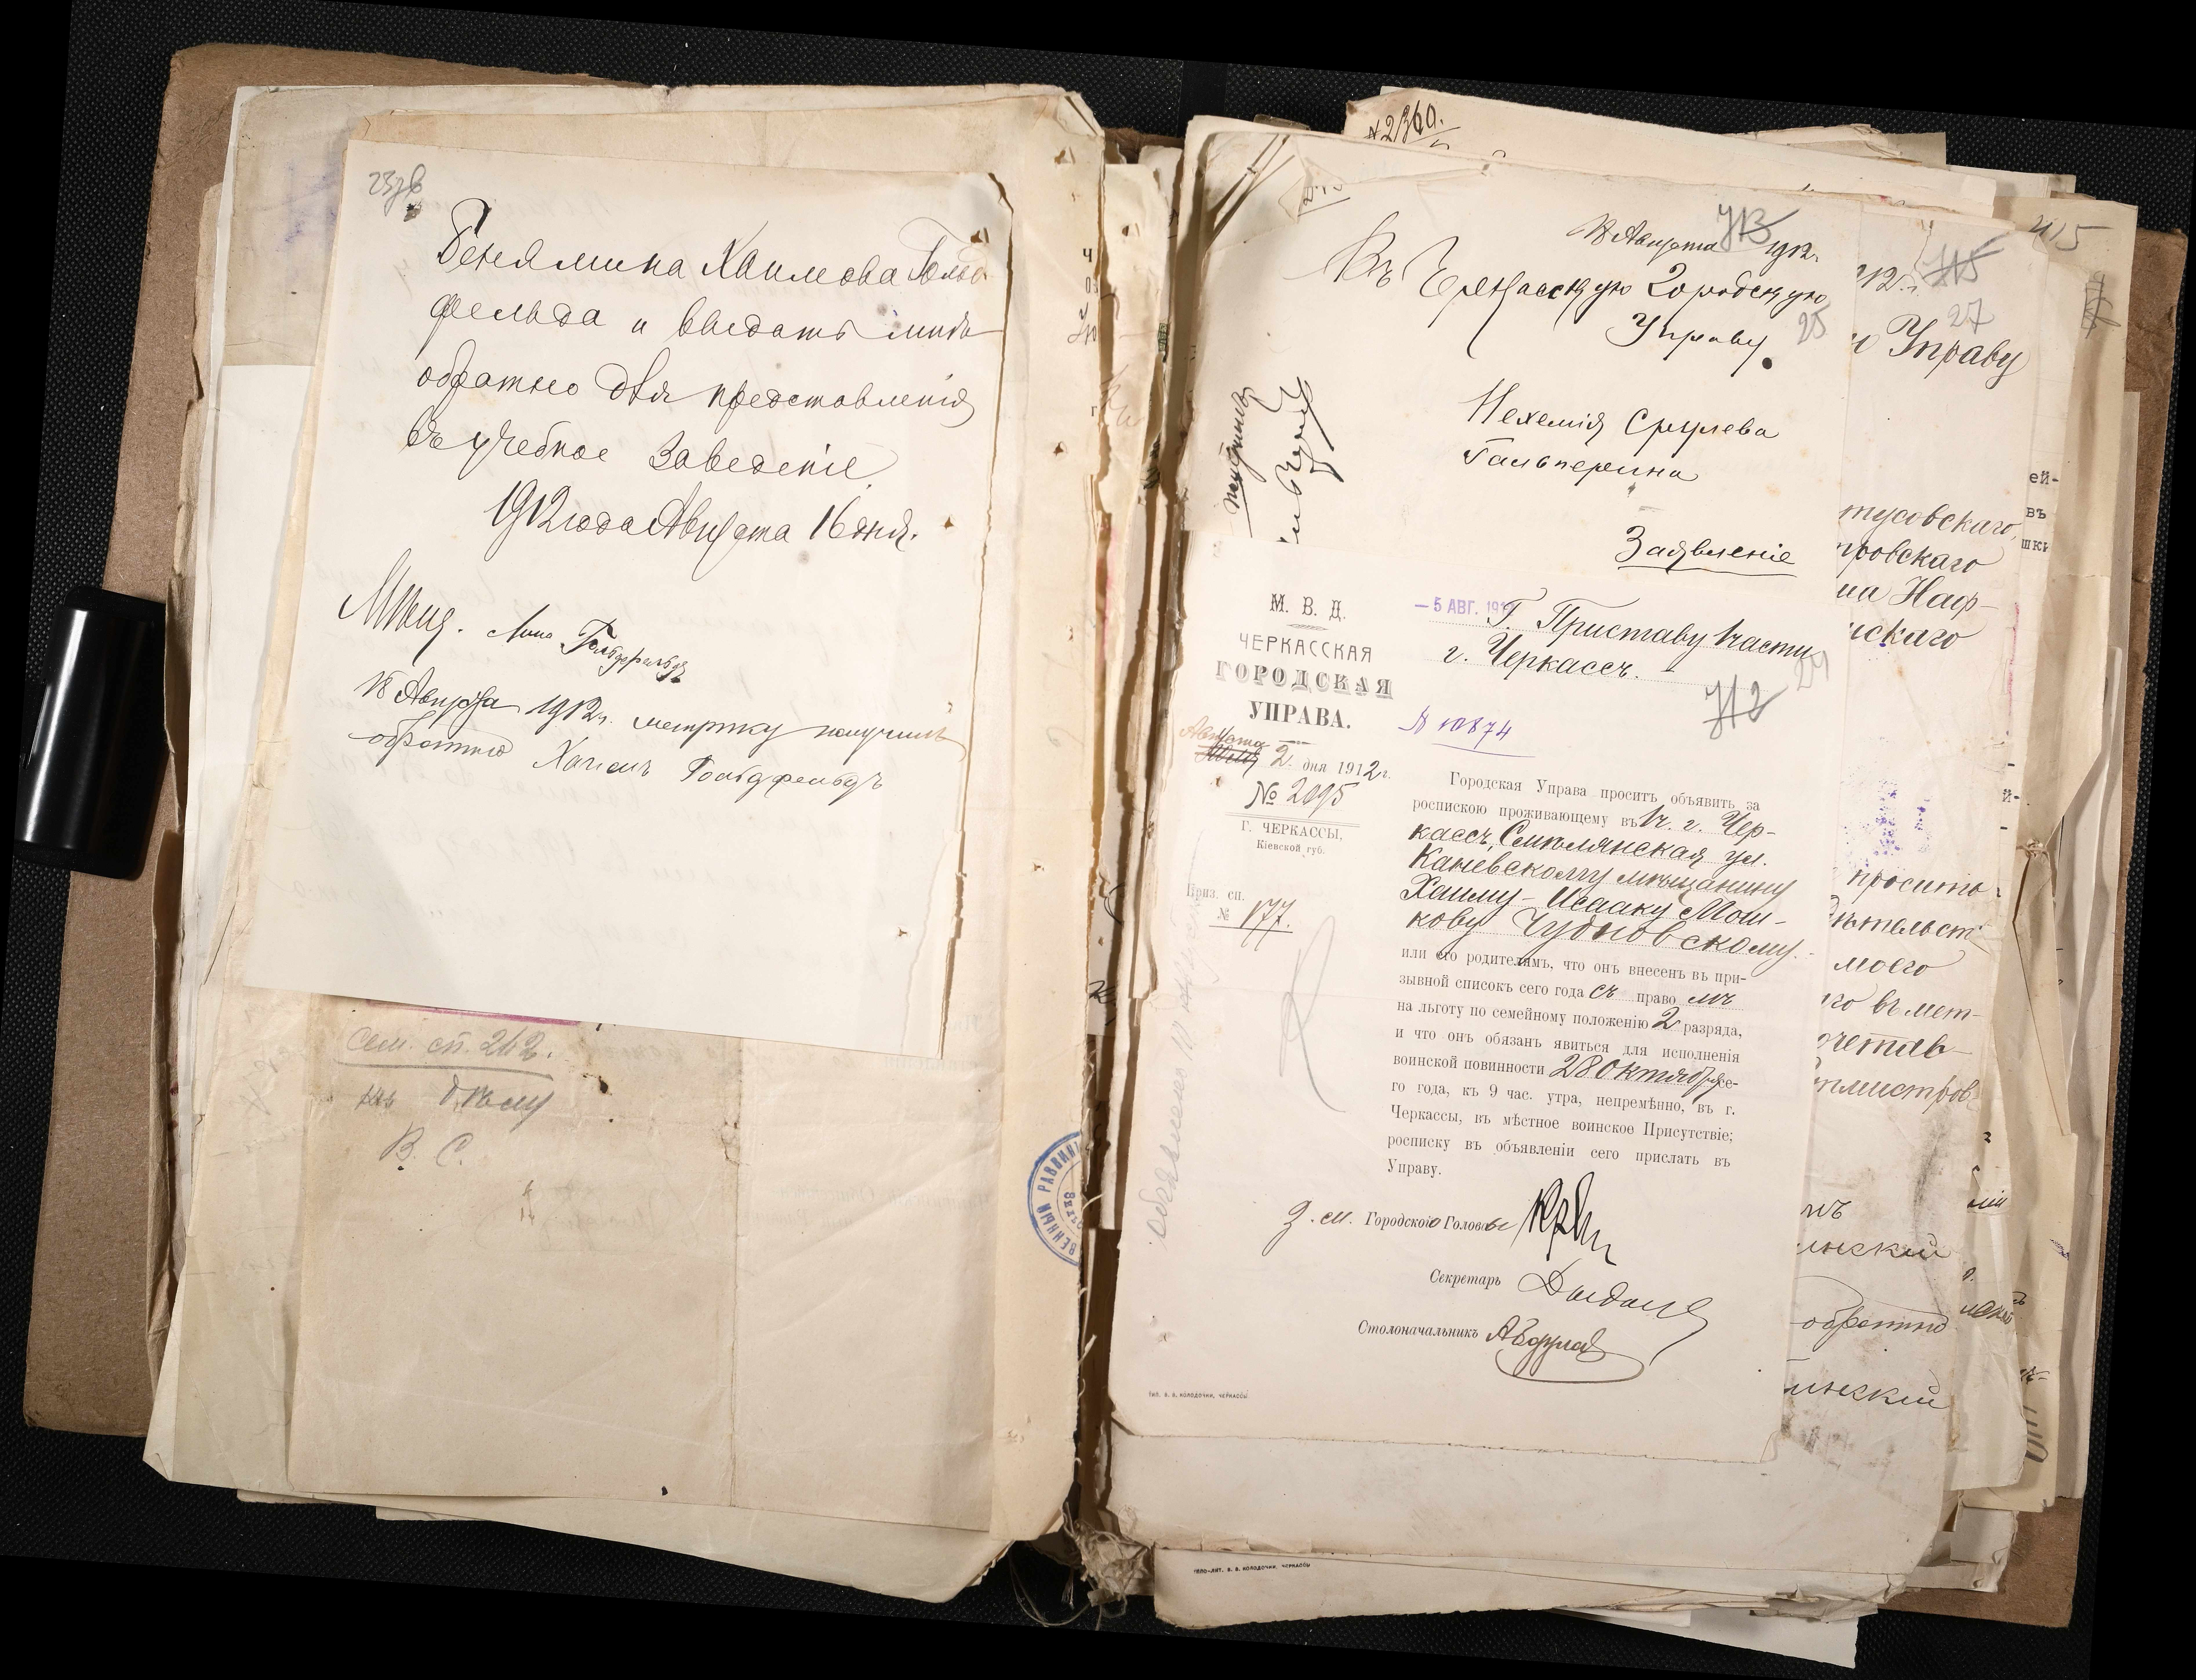 Бенямина Хаимова Гольд
фельда и выдать мнѣ
обратно для представленія
въ учебное Заведеніе
1912 года Августа 16 дня.
Мѣщ. Гольдфельдъ
18 Августа 1912 г. метрику получилъ
обратно Хаимъ Гольдфельдъ
Сем. сп. 242.
къ дѣлу
В. С.
№ 2360.
18 Августа 1912 г.
713
Въ Черкасскую Городскую
Управу.
25
Нехемія Срулева
Гальперина
Заявленіе
М. В. Д.
ЧЕРКАССКАЯ
ГОРОДСКАЯ
УПРАВА.
Августа
2 дня 1912 г.
№ 2095
Г. ЧЕРКАССЫ,
Кіевской губ.
Приз. сп.
№ 177.
— 5 АВГ. 191
Г. Приставу 1 части
г. Черкассъ.
24
712
№ 10874
Городская Управа проситъ объявить за
роспискою проживающему въ 1 ч. г. Чер-
кассъ, Смѣлянская ул.
Каневскому мѣщанину
Хаиму-Исааку Мош-
кову Чудновскому.
или его родителямъ, что онъ внесенъ въ при-
зывной списокъ сего года съ правомъ
на льготу по семейному положенію 2 разряда,
и что онъ обязанъ явиться для исполненія
воинской повинности 28 октября се-
го года, къ 9 час. утра, непремѣнно, въ г.
Черкассы, въ мѣстное воинское Присутствіе;
росписку въ объявленіи сего прислать въ
Управу.
З. м. Городского Головы
Секретарь
Столоначальникъ
ТИП. В. В. КОЛОДОЧКИ, ЧЕРКАССЫ
ТИПО-ЛИТ. В. В. КОЛОДОЧКИ, ЧЕРКАССЫ
715
27
Управу
тусовскаго,
тровскаго
на Наф-
нскаго
просить
моего
въ мет-
обратно
415